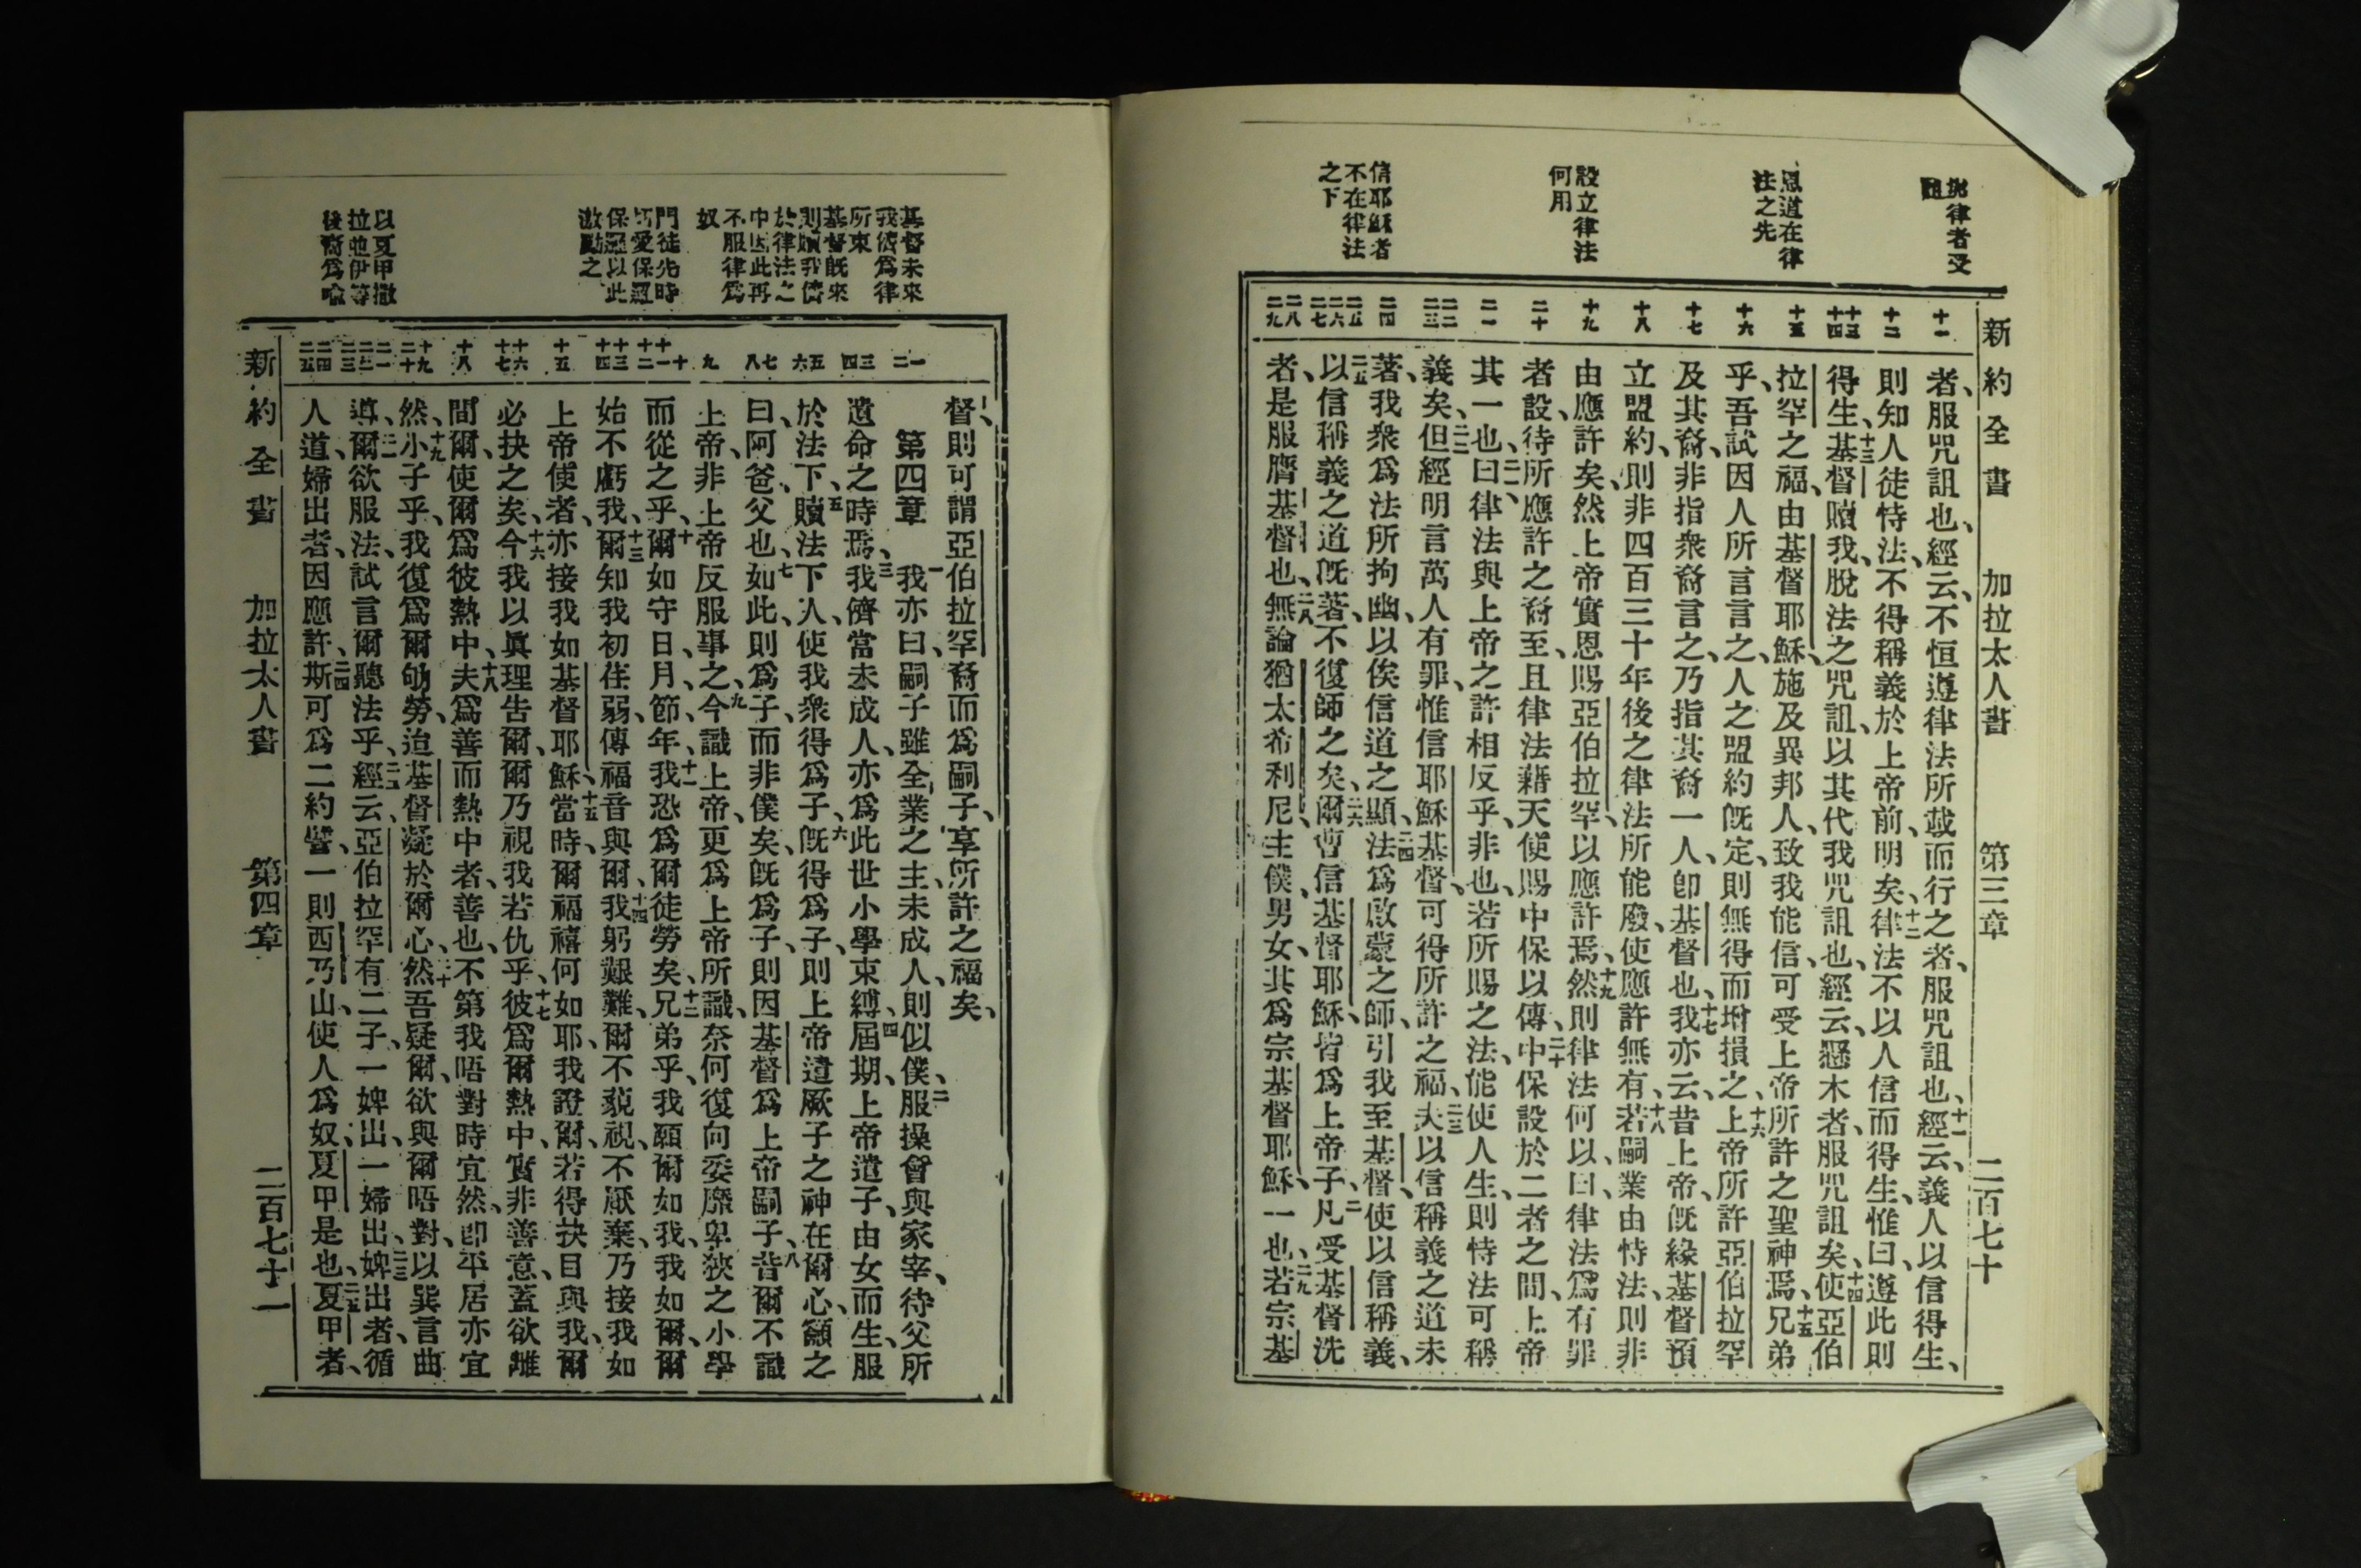 新約全書 加拉太人書 第三章 二百七十
恩道在律
法之先
設立律法
何用
信耶穌者
不在律法
之下
十一
十二
十三
十四
十五
十六
十七
十八
十九
二十
二一
二二
二三
二四
二五
二六
二七
二八
二九
者、服咒詛也、經云、不恒遵律法所載而行之者、服咒詛也、十一經云、義人以信得生、
則知人徒恃法、不得稱義於上帝前、明矣、十二律法不以人信而得生、惟曰、遵此則
得生、十三基督贖我、脫法之咒詛、以其代我咒詛也、經云、懸木者、服咒詛矣、十四使亞伯
拉罕之福、由基督耶穌、施及異邦人、致我能信、可受上帝所許之聖神焉、十五兄弟
乎、吾試因人所言言之、人之盟約旣定、則無得而增損之、十六上帝所許亞伯拉罕
及其裔、非指衆裔言之、乃指其裔一人、卽基督也、十七我亦云、昔上帝旣緣基督預
立盟約、則非四百三十年後之律法、所能廢、使應許無有、十八若嗣業由恃法、則非
由應許矣、然上帝實恩賜亞伯拉罕、以應許焉、十九然則律法何以、曰、律法爲有罪
者設、待所應許之裔至、且律法藉天使賜中保以傳、二十中保設於二者之間、上帝
其一也、二一曰、律法與上帝之許相反乎、非也、若所賜之法、能使人生、則恃法可稱
義矣、二二但經明言萬人有罪、惟信耶穌基督、可得所許之福、二三夫以信稱義之道未
著、我衆爲法所拘幽、以俟信道之顯、二四法爲啟蒙之師、引我至基督、使以信稱義、
二五以信稱義之道旣著、不復師之矣、二六爾曹信基督耶穌、皆爲上帝子、凡受基督洗
者、是服膺基督也、二八無論猶太希利尼、主僕、男女、其爲宗基督耶穌、一也、二九若宗基
新約全書 加拉太人書 第四章 二百七十一
基督未來
我儕爲律
所束
基督旣來
則贖我儕
於律法之
中因此再
不服律爲
奴
門徒先時
切愛保羅
保羅以此
激勵之
以夏甲撒
拉並伊等
後裔爲喻
一
二
三
四
五
六
七
八
九
十
十一
十二
十三
十四
十五
十六
十七
十八
十九
二十
二一
二二
二三
二四
二五
督、則可謂亞伯拉罕裔而爲嗣子、享所許之福矣、
第四章 一我亦曰、嗣子雖全業之主、未成人、則似僕、二服操曾與家宰、待父所
遺命之時焉、三我儕當未成人、亦爲此世小學束縛、四屆期、上帝遣子、由女而生、服
於法下、五贖法下人、使我衆得爲子、六旣得爲子、則上帝遣厥子之神在爾心、籲之
曰、阿爸、父也、七如此、則爲子、而非僕矣、旣爲子、則因基督爲上帝嗣子、八昔爾不識
上帝、非上帝反服事之、九今識上帝、更爲上帝所識、奈何復向委靡卑狹之小學
而從之乎、十爾如守日、月、節、年、十一我恐爲爾徒勞矣、十二兄弟乎、我願爾如我、我如爾、爾
始不虧我、十三爾知我初住弱、傳福音與爾、十四我躬艱難、爾不藐視、不厭棄、乃接我如
上帝使者、亦接我如基督耶穌、十五當時爾福禧何如耶、我證爾、若得抉目與我、爾
必抉之矣、十六今我以眞理告爾、爾乃視我若仇乎、十七彼爲爾熱中、實非善意、蓋欲離
間爾、使爾爲彼熱中、十八夫爲善而熱中者、善也、不第我晤對時宜然、卽平居亦宜
然、十九小子乎、我復爲爾劬勞、迨基督凝於爾心、二十然吾疑爾、欲與爾晤對、以巽言曲
導、二一爾欲服法、試言爾聽法乎、二二經云、亞伯拉罕有二子、一婢出、一婦出、二三婢出者、循
人道、婦出者、因應許、二四斯可爲二約譬、一則西乃山、使人爲奴、夏甲是也、二五夏甲者、